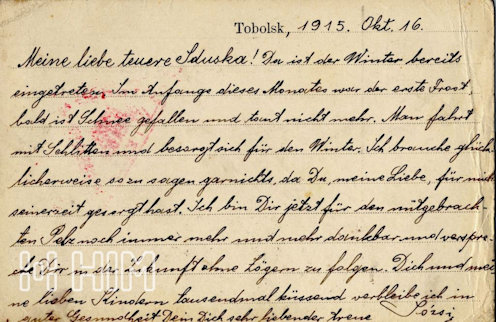 Tobolsk, 1915. Okt. 16.
Meine liebe teuere Iduska! Da ist der Winter bereits
eingetreten. Im Anfange dieses Monates war der erste Frost,
bald ist Schnee gefallen und taut nicht mehr. Man fahrt
mit Schlitten und besorgt sich für den Winter. Ich brauche glück-
licherweise so zu sagen garnichts, da Du, meine Liebe, für mich
seinerzeit gesorgt hast. Ich bin Dir jetzt für den mitgebrach-
ten Pelz noch immer mehr und mehr dankbar und verspre-
che Dir in der Zukunft ohne Zögern zu folgen. Dich und mei-
ne lieben Kindern tausendmal küssend verbleibe ich in
guter Gesundheit Dein Dich sehr liebender
HIM